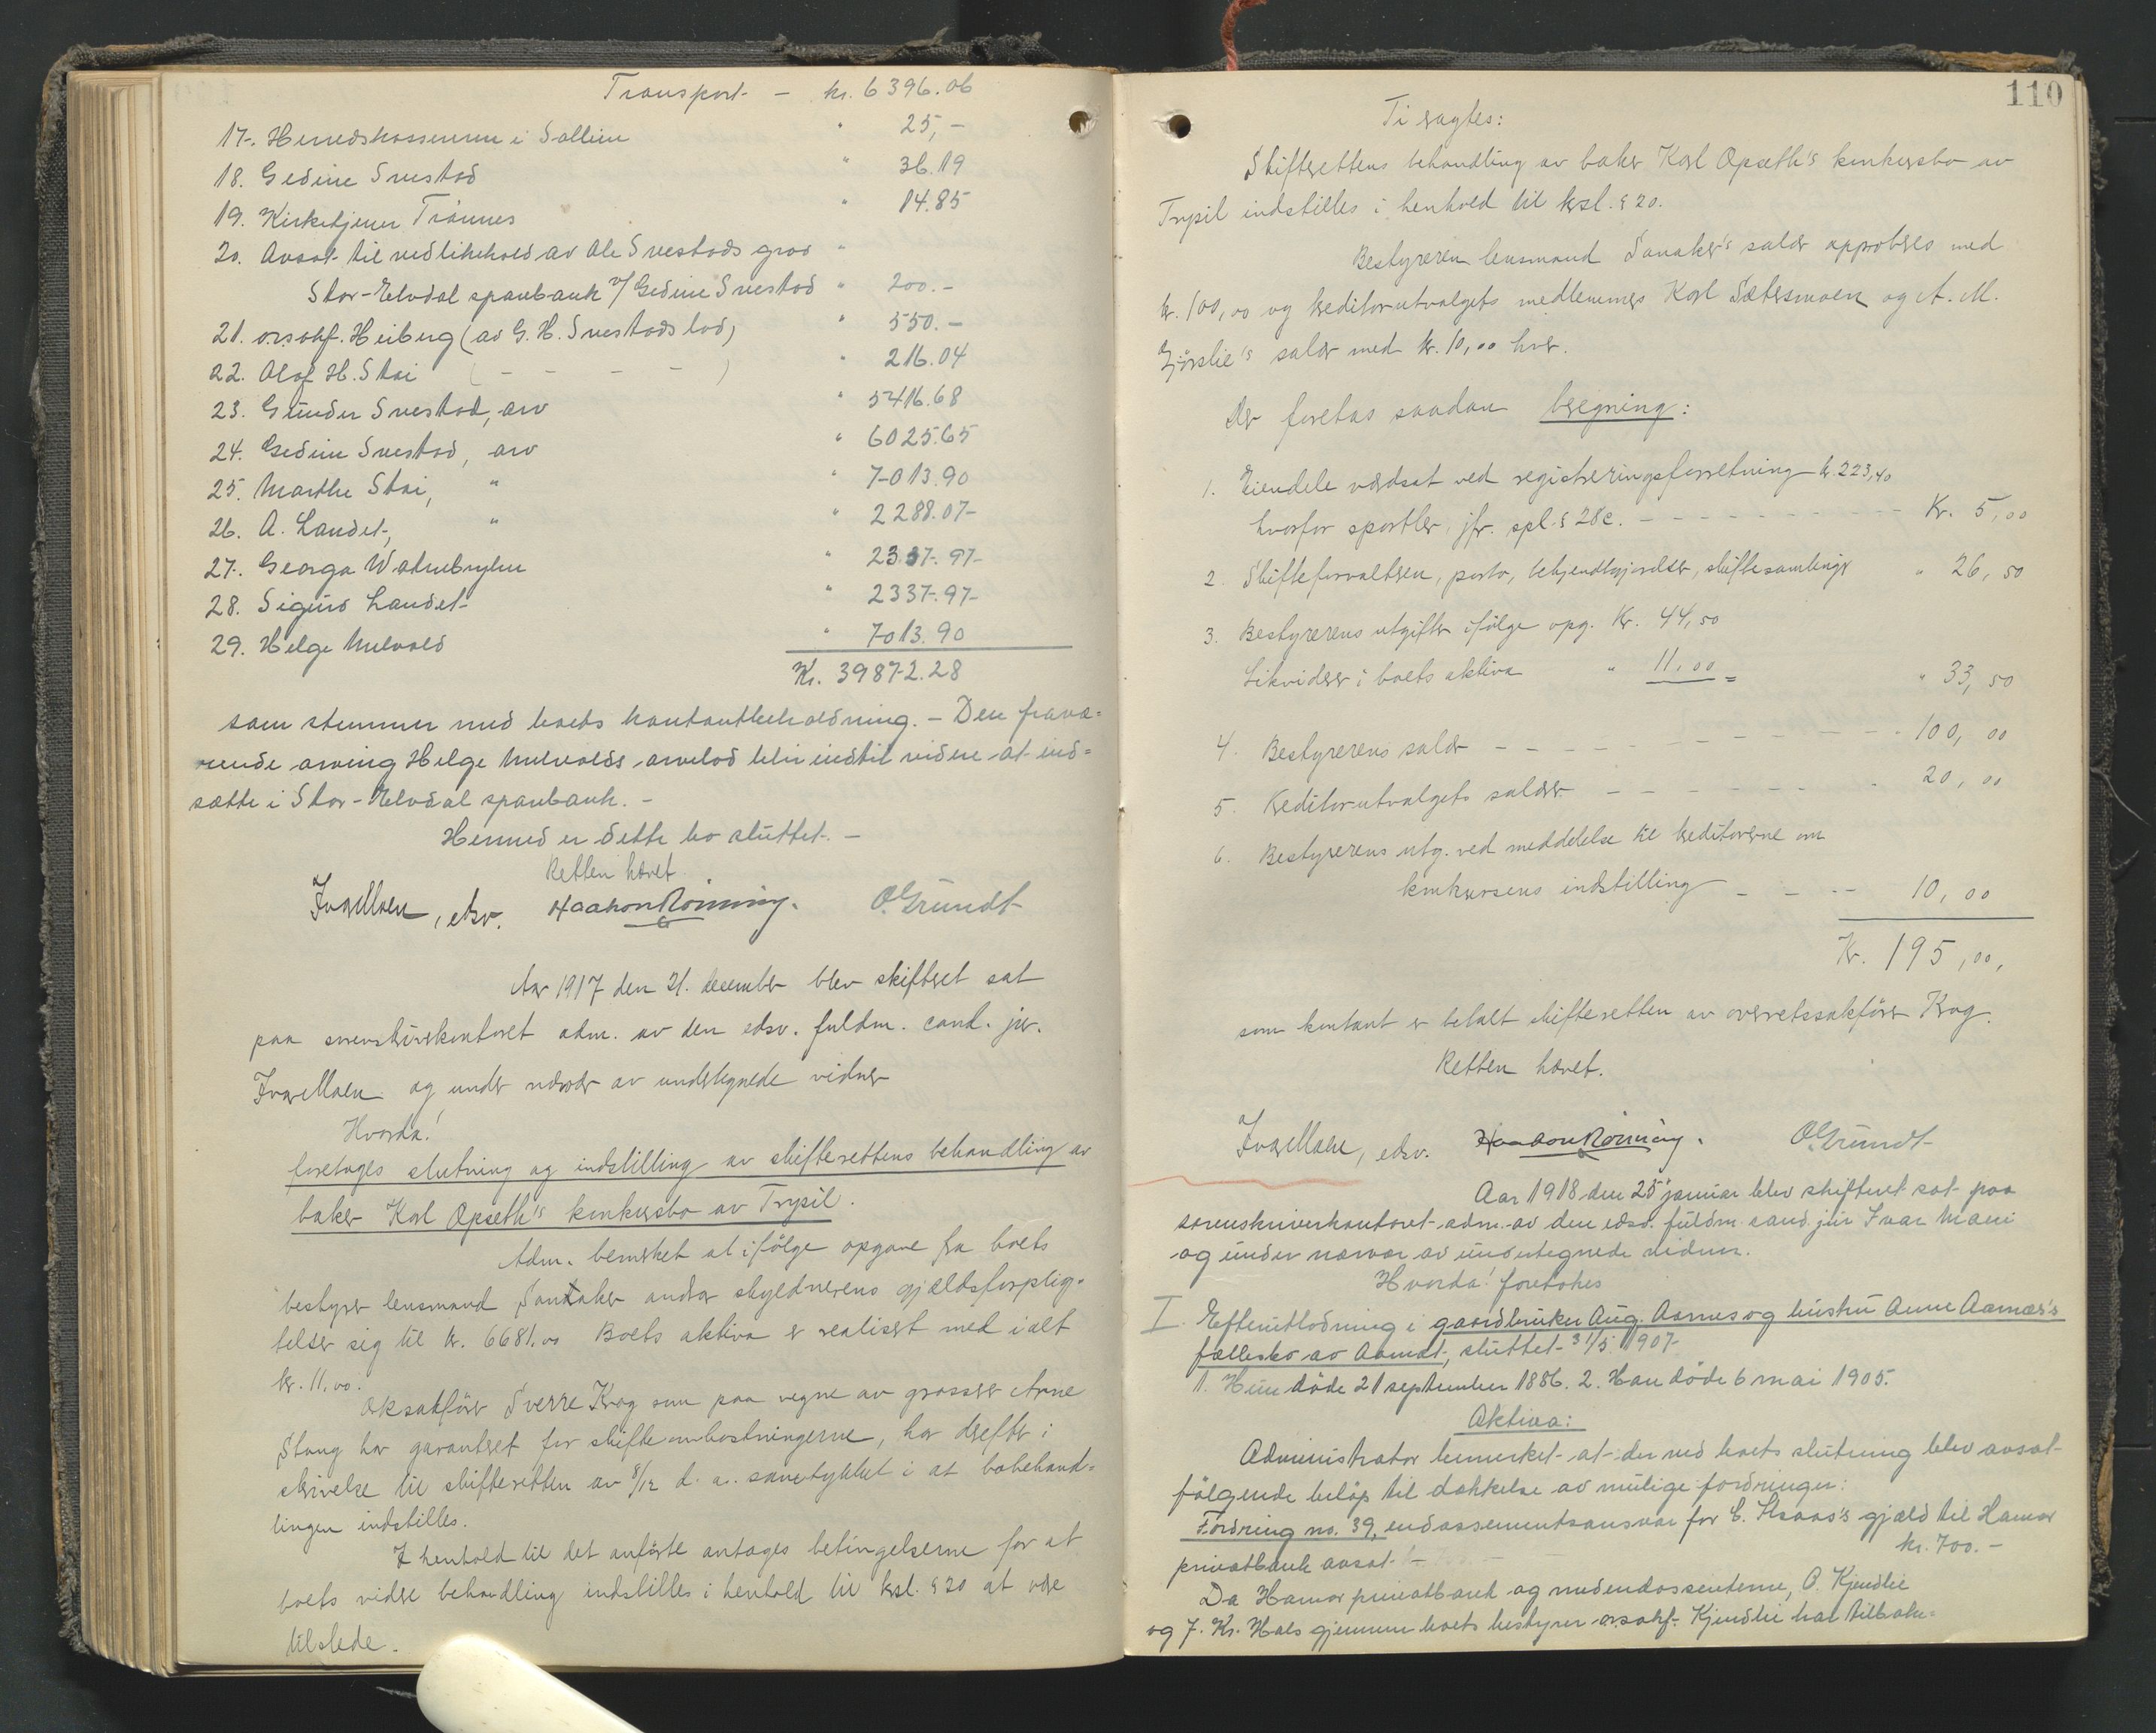 Transport - kr. 6396.06
17. Herredskassereren i Sollien " 25,-
18. Gedine Snestad " 36.19
19. Kirketjener Trönnes " 14.85
20. Avsat til vedlikehold av Ole Snestads grav "
Stor-Elvdal sparebank v/ Gedine Snestad " 200.-
21. orsakf. Heiberg (av G. H. Snestads lod) " 550.-
22. Olof H. Stai ( - - - - ) " 216.04
23. Gunder Snestad, arv " 5416.68
24. Gedine Snestad, arv " 6025.65
25. Marthe Stai, " " 7013.90
26. A. Landet, " " 2288.07
27. Georga Watnebryhn " 2337.97
28. Sigurd Landet " 2337.97
29. Helge Melvold " 7013.90
Kr. 39872.28
som stemmer med boets kontantbeholdning. - Den fravæ=
rende arving Helge Melvolds arvelod blir indtil videre at ind=
sætte i Stor-Elvdal sparebank. -
Hermed er dette bo sluttet. -
Retten hævet.
Ivar Moen, edsv. Haakon Rönning. O. Grundt
Aar 1917 den 21. december blev skifteret sat
paa sorenskriverkontoret adm. av den edsv. fuldm. cand. jur.
Ivar Moen og under nærvær av undertegnede vidner
Hvorda!
foretoges slutning og indstilling av skifterettens behandling av
baker Karl Opseth's konkursbo av Trysil.
Adm. bemerket at ifölge opgave fra boets
bestyrer lensmand Sanaker andrar skyldnerens gjældsforplig=
telser sig til kr. 6681.00 Boets aktiva er realisert med ialt
kr. 11.00.
Orsakförer Sverre Krog som paa vegne av grosserer Arne
Stang har garantert for skifteomkostningerne, har derefter i
skrivelse til skifteretten av 8/12 d. a. samtykket i at bobehand=
lingen indstilles.
I henhold til det anförte antages betingelserne for at
boets videre behandling indstilles i henhold til ksl. § 20 at være
tilstede.
110
Ti eragtes:
Skifterettens behandling av baker Karl Opseth's konkursbo av
Trysil indstilles i henhold til ksl. § 20.
Bestyreren lensmand Sanaker's salær approberes med
kr. 100,00 og kreditorutvalgets medlemmer Karl Sætersmoen og A. M.
Gjörslie's salær med kr. 10,00 hver.
Der foretas saadan beregning:
1. Eiendele værdsat ved registreringsforretning kr. 223,40
hvorfor sportler, jfr. spl. § 28c. - - - - - Kr. 5,00
2. Skifteforvalteren, porto, bekjendtgjørelser, skiftesamlinger " 26,50
3. Bestyrerens utgifter ifölge opg. Kr. 44,50
Likvider i boets aktiva " 11.00 = " 33,50
4. Bestyrerens salær - - - - - 100,00
5. Kreditorutvalgets salærer - - - - - 20,00
6. Bestyrerens utg. ved meddelelse til kreditorerne om
konkursens indstilling - - - 10,00
Kr. 195,00,
som kontant er betalt skifteretten av overretssakförer Krog.
Retten hævet.
Ivar Moen, edsv. Haakon Rönning. O. Grundt
Aar 1918 den 25 januar blev skifteret sat paa
sorenskriverkontoret adm. av den edsv. fuldm. cand. jur Ivar Moen
og under nærvær av undertegnede vidner.
Hvorda! foretokes
I. Efterutlodning i gaardbruker Aug. Aamæs og hustru Anne Aamæs's
fællesbo av Aamot, sluttet 31/5 1907
1. Hun döde 21 september 1886. 2. Han döde 6 mai 1905.
Aktiva:
Administrator bemerket at der ved boets slutning blev avsat
fölgende belöp til dækkelse av mulige fordringer:
Fordring no. 39, endossementsansvar for E. Skaar's gjæld til Hamar
privatbank avsat - kr. 700.-
Da Hamar privatbank og medendossenterne, O. Kjendlie
og J. Kr. Hals gjennem boets bestyrer orsakf. Kjendlie har tilbake=